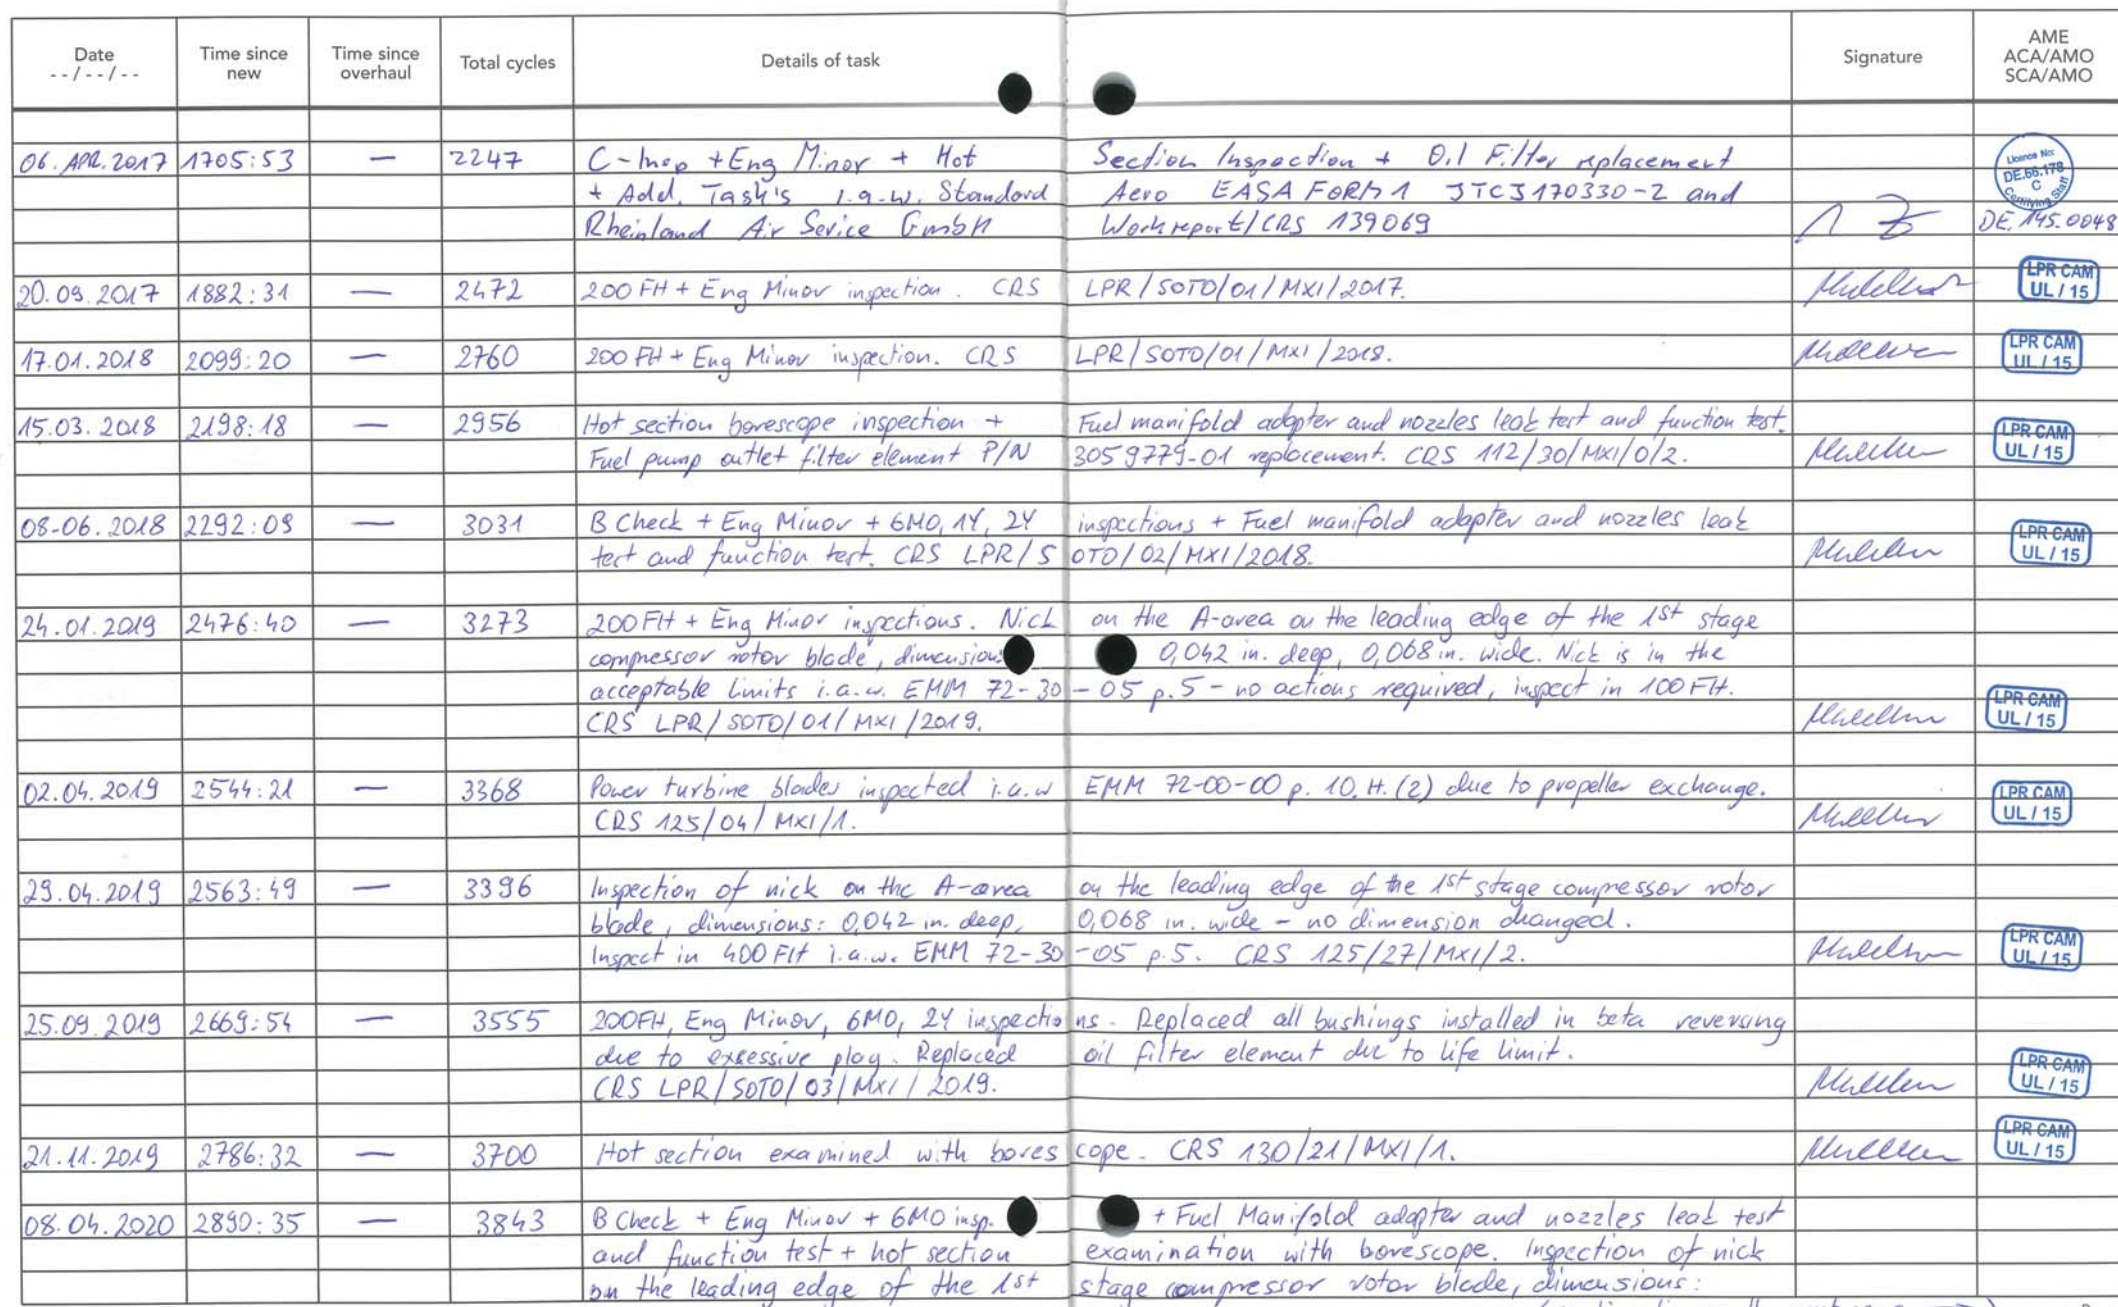 Date --/--/-- Time since new Time since overhaul Total cycles Details of task Signature AME ACA/AMO SCA/AMO
06. APR. 2017 1705:53 — 2247 C-Insp + Eng Minor + Hot Section Inspection + Oil Filter replacement
+ Add. Task's i.a.w. Standard Aero EASA FORM 1 JTCJ170330-2 and
Rheinland Air Sevice GmbH Workreport/CRS 139069
Licence No: DE.66.178 C Certifying Staff
DE.145.0048
20.09.2017 1882:31 — 2472 200 FH + Eng Minor inspection. CRS LPR/SOTO/01/MXI/2017. LPR CAM UL/15
17.01.2018 2099:20 — 2760 200 FH + Eng Minor inspection. CRS LPR/SOTO/01/MXI/2018. LPR CAM UL/15
15.03.2018 2198:18 — 2956 Hot section borescope inspection + Fuel manifold adapter and nozzles leak test and function test.
Fuel pump outlet filter element P/N 3059779-01 replacement. CRS 112/30/MXI/0/2. LPR CAM UL/15
08-06.2018 2292:09 — 3031 B Check + Eng Minor + 6MO, 1Y, 2Y inspections + Fuel manifold adapter and nozzles leak
test and function test. CRS LPR/SOTO/02/MXI/2018. LPR CAM UL/15
24.01.2019 2476:40 — 3273 200 FH + Eng Minor inspections. Nick on the A-area on the leading edge of the 1st stage
compressor rotor blade, dimensions 0,042 in. deep, 0,068 in. wide. Nick is in the
acceptable limits i.a.w. EMM 72-30-05 p.5 - no actions required, inspect in 100 FH.
CRS LPR/SOTO/01/MXI/2019. LPR CAM UL/15
02.04.2019 2544:21 — 3368 Power turbine blades inspected i.a.w EMM 72-00-00 p. 10. H. (2) due to propeller exchange.
CRS 125/04/MXI/1. LPR CAM UL/15
29.04.2019 2563:49 — 3396 Inspection of nick on the A-area on the leading edge of the 1st stage compressor rotor
blade, dimensions: 0,042 in. deep, 0,068 in. wide - no dimension changed.
Inspect in 400 FH i.a.w. EMM 72-30-05 p.5. CRS 125/27/MXI/2. LPR CAM UL/15
25.09.2019 2669:54 — 3555 200FH, Eng Minor, 6MO, 2Y inspections. Replaced all bushings installed in beta reversing
due to exsessive play. Replaced oil filter element due to life limit.
CRS LPR/SOTO/03/MXI/2019. LPR CAM UL/15
21.11.2019 2786:32 — 3700 Hot section examined with borescope. CRS 130/21/MXI/1. LPR CAM UL/15
08.04.2020 2890:35 — 3843 B Check + Eng Minor + 6MO insp. + Fuel Manifold adapter and nozzles leak test
and function test + hot section examination with borescope. Inspection of nick
on the leading edge of the 1st stage compressor rotor blade, dimensions: